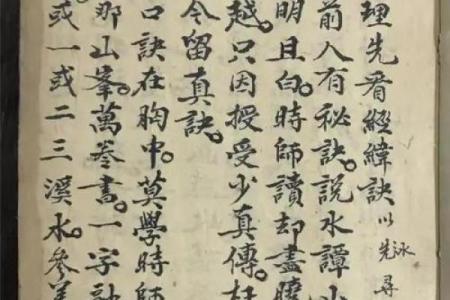 理先看經緯訣以
泳先尋
前人有秘訣說水譚山
明且白時師讀却盡瞭
越只因授受少真傳
今留真訣
口訣在胸中莫學時師
那山峯萬巻書一字訣
或一或二三溪水參差